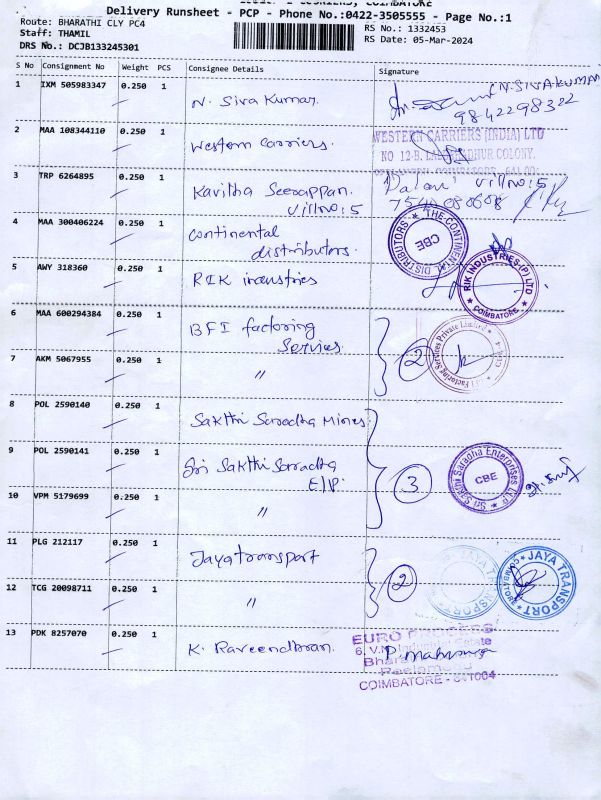 Delivery Runsheet - PCP - Phone No.:0422-3505555 - Page No.:1
Route: BHARATHI CLY PC4
RS No.: 1332453
Staff: THAMIL
RS Date: 05-Mar-2024
DRS No.: DCJB133245301
S No Consignment No Weight PCS Consignee Details Signature
1 IXM 505983347 0.250 1 N. Siva Kumar. (N. SIVAKUMAR
9842298322
2 MAA 108344110 0.250 1 Western Carriers. WESTERN CARRIERS (INDIA) LTD
NO 12-B.
COLONY.
3 TRP 6264895 0.250 1 Kavitha Seerappan. Villno: 5
Villno: 5
4 MAA 300406224 0.250 1 Continental
distributors.
THE CONTINENTAL DISTRIBUTORS
CBE
5 AWY 318360 0.250 1 RIK industries
RIK INDUSTRIES (P) LTD
COIMBATORE
6 MAA 600294384 0.250 1 BFI factoring
Services.
7 AKM 5067955 0.250 1 "
2
Factoring Services Private Limited
8 POL 2590140 0.250 1 Sakthi Saradha Mines
9 POL 2590141 0.250 1 Sri Sakthi Saradha
E/P.
10 VPM 5179699 0.250 1 "
3
Sri Sakthi Saradha Enterprises
CBE
11 PLG 212117 0.250 1 Jayatransport
12 TCG 20098711 0.250 1 "
2
JAYA TRANSPORT
COIMBATORE
JAYA TRANSPORT
COIMBATORE
13 PDK 8257070 0.250 1 K. Raveendhran.
EURO
COIMBATORE - 641004